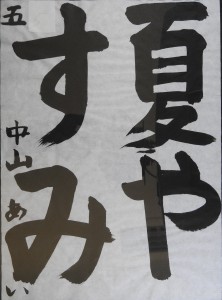 夏や
すみ
五 中山あい